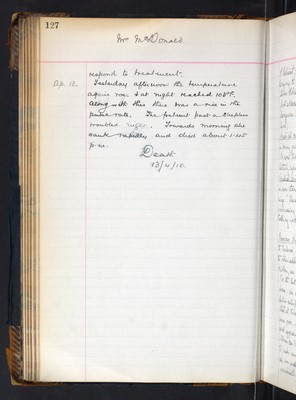 127
Mrs McDonald
respond to treatment.
Ap. 12. Yesterday afternoon the temperature
again rose & at night reached 108°F.
Along with this there was a rise in the
pulse rate. The patient past a sleepless
troubled night. Towards morning she
sank rapidly and died about 1.45
p.m.
Death
13/4/10.